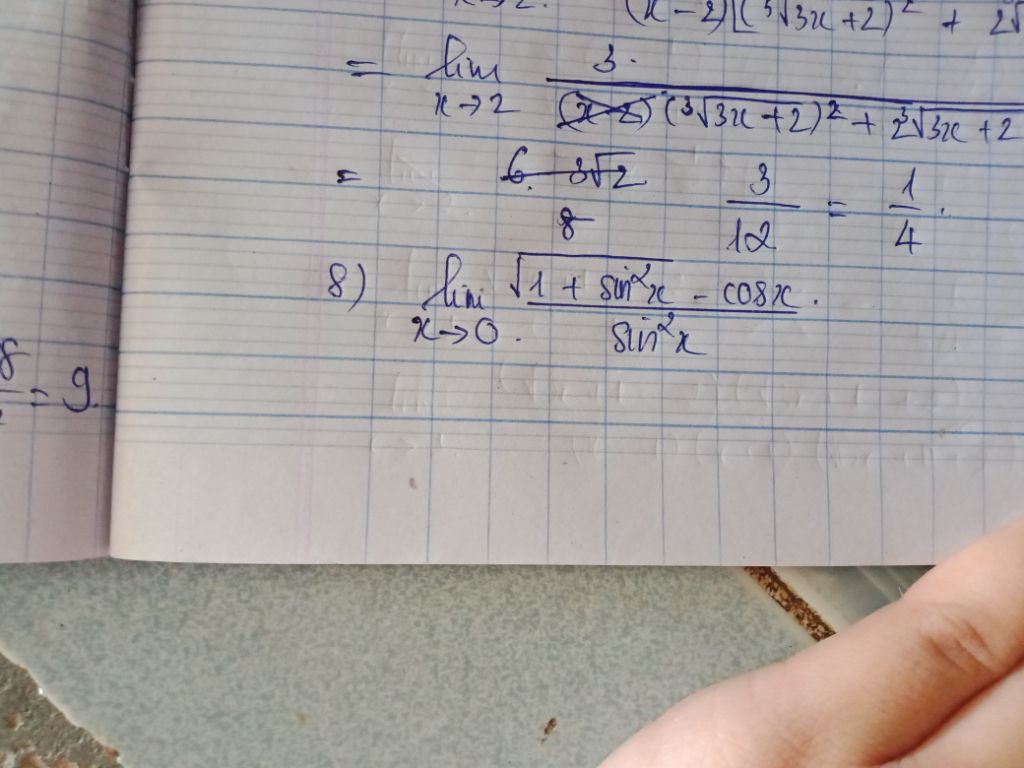 (x - 2)[(³√3x+2)² + 2
= lim 3.
x→2 (x-2) (³√3x+2)² + 2³√3x+2
= 6. 3√2 3 = 1
8 12 4.
8) lim √1 + sin²x - cosx.
x→0. sin²x
= 9.